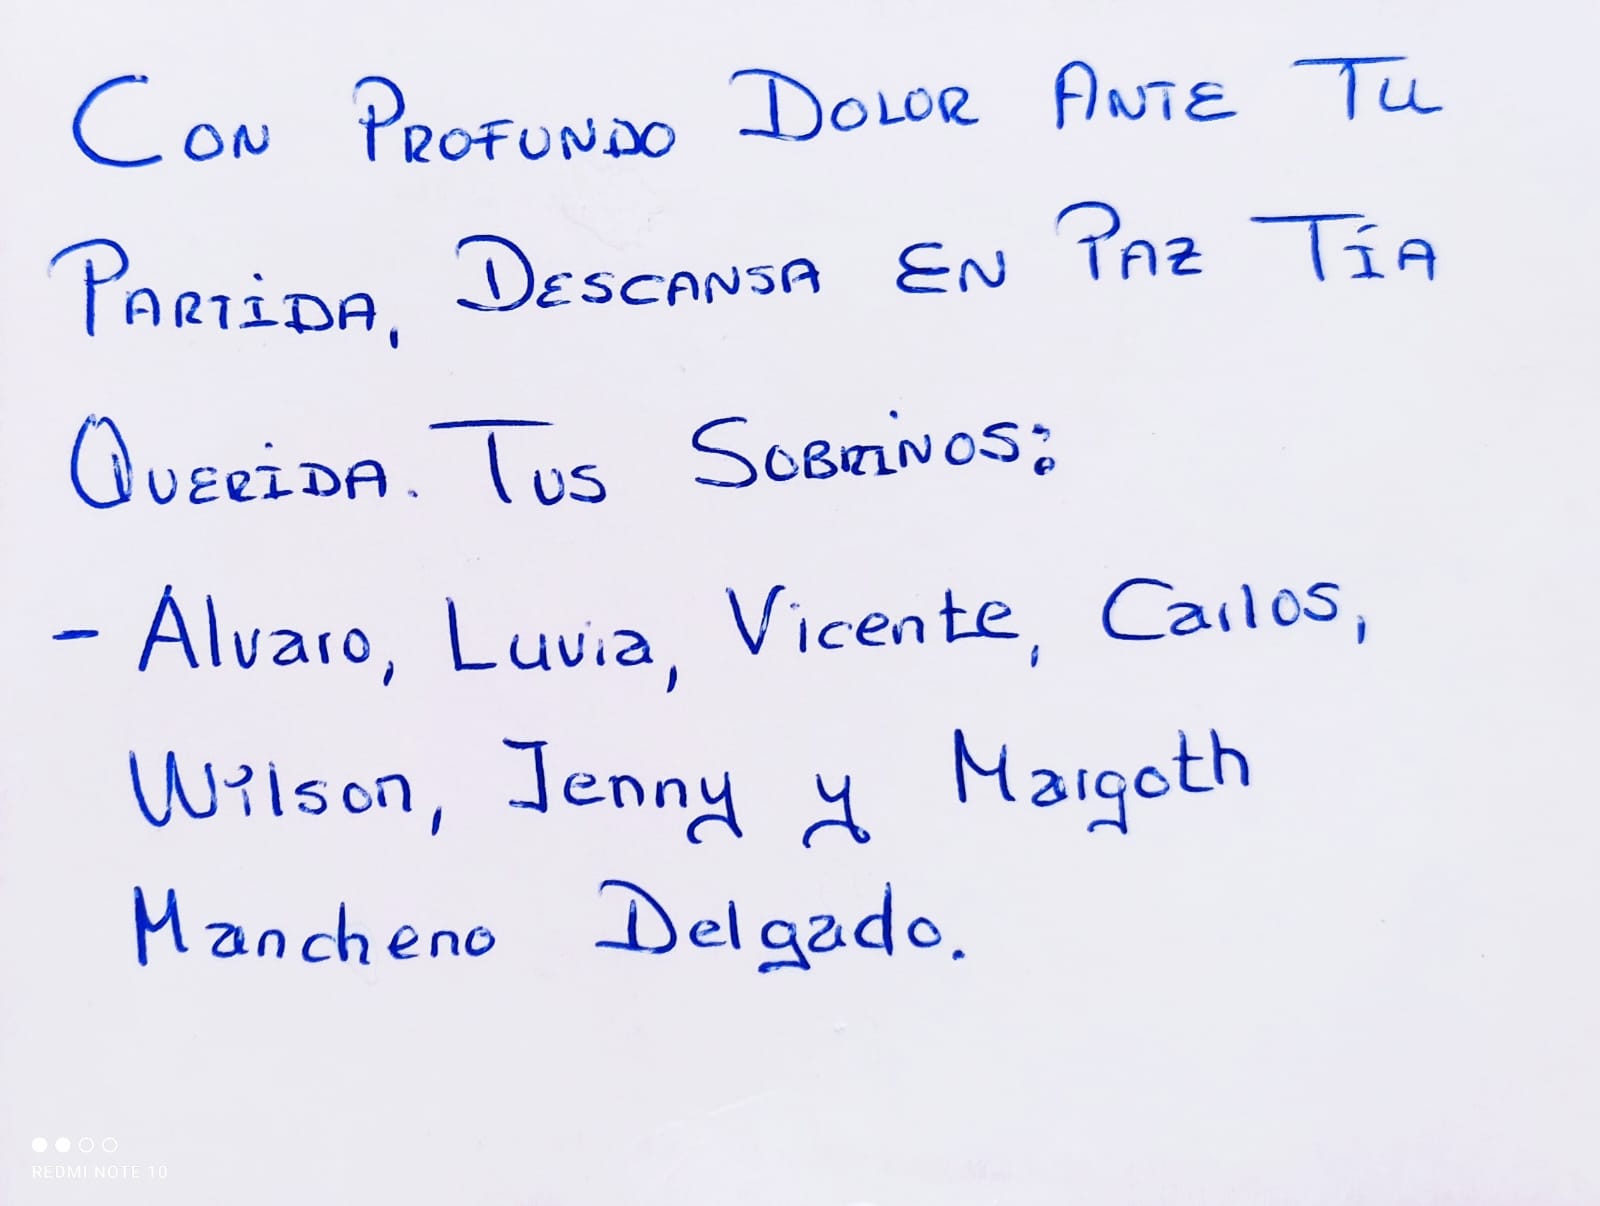 CON PROFUNDO DOLOR ANTE TU
PARTIDA, DESCANSA EN PAZ TÍA
QUERIDA. TUS SOBRINOS:
- Alvaro, Luvia, Vicente, Carlos,
Wilson, Jenny y Margoth
Mancheno Delgado.
REDMI NOTE 10